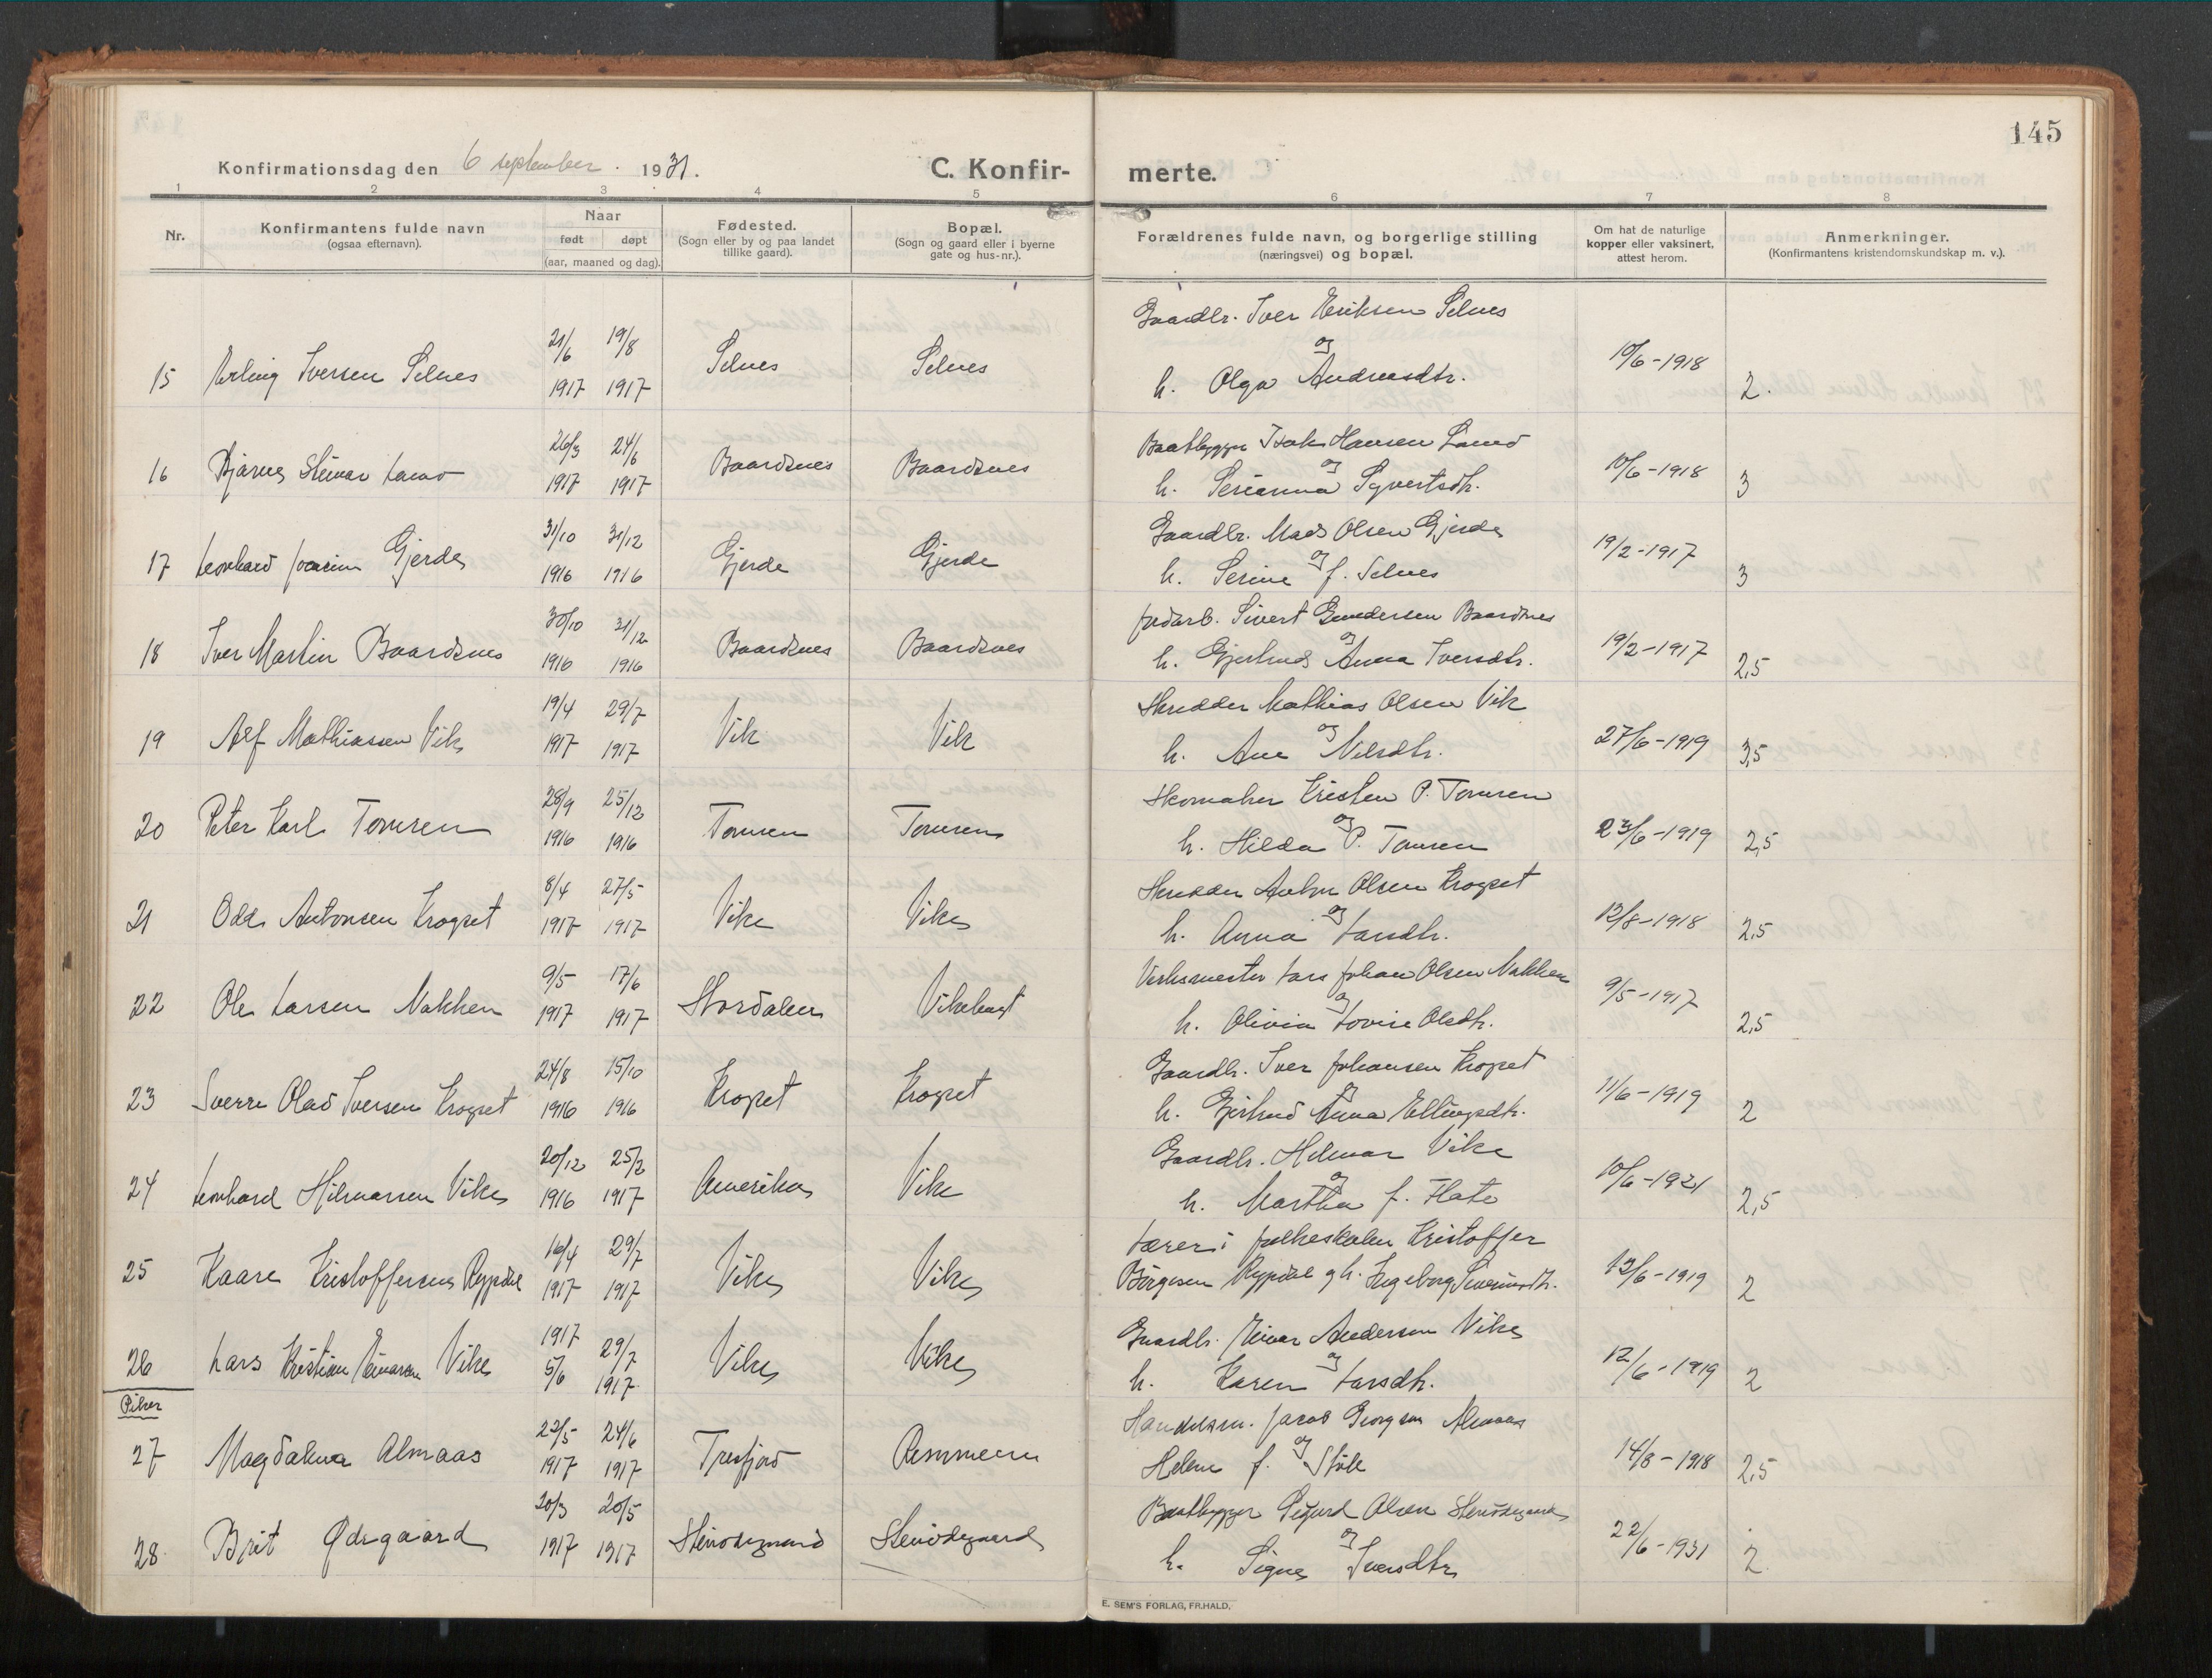 145
Konfirmationsdag den 6 september. 1931.
C. Konfirmerte.
1 2 3 4 5 6 7 8
Nr.
Konfirmantens fulde navn
(ogsaa efternavn).
Naar
født døpt
(aar, maaned og dag).
Fødested.
(Sogn eller by og paa landet
tillike gaard).
Bopæl.
(Sogn og gaard eller i byerne
gate og hus-nr.).
Forældrenes fulde navn, og borgerlige stilling
(næringsvei) og bopæl.
Om hat de naturlige
kopper eller vaksinert,
attest herom.
Anmerkninger.
(Konfirmantens kristendomskundskap m. v.).
15 Erling Iversen Selnes 21/6 1917 19/8 1917 Selnes Selnes
Gaardbr. Iver Eriksen Selnes
og
h. Olga Andreasdtr.
10/6-1918 2.
16 Bjarne Steinar Land 26/3 1917 24/6 1917 Baardsnes Baardsnes
Baatbygger Isak Hansen Land
og
h. Serianna Syvertsdtr.
10/6-1918 3
17 Leonhard Joakim Gjerde 31/10 1916 31/12 1916 Gjerde Gjerde
Gaardbr. Mads Olsen Gjerde
og
h. Serine f. Selnes
19/2-1917 3
18 Iver Martin Baardsnes 30/10 1916 31/12 1916 Baardsnes Baardsnes
Jordarb. Sivert Gundersen Baardsnes
og
h. Gjertrud Anna Iversdtr.
19/2-1917 2,5
19 Alf Mathiassen Vik 19/4 1917 29/7 1917 Vik Vik
Skredder Mathias Olsen Vik
og
h. Ane Nilsdtr.
27/6-1919 3,5
20 Peter Karl Tomren 28/9 1916 25/12 1916 Tomren Tomren
Skomaker Kristen P. Tomren
og
h. Hilda P. Tomren
23/6-1919 2,5
21 Odd Antonsen Krogset 8/4 1917 27/5 1917 Vike Vike
Skredder Anton Olsen Krogset
og
h. Anna Larsdtr.
12/8-1918 2,5
22 Ole Larsen Nakken 9/5 1917 17/6 1917 Stordalen Vikebugt
Verksmester Lars Johan Olsen Nakken
og
h. Olivia Lovise Olsdtr.
9/5-1917 2,5
23 Sverre Olav Iversen Krogset 24/8 1916 15/10 1916 Krogset Krogset
Gaardbr. Iver Johansen Krogset
og
h. Gjertrud Anna Ellingsdtr.
11/6-1919 2
24 Leonhard Hilmarsen Vike 20/12 1916 25/2 1917 Amerika Vike
Gaardbr. Hilmar Vike
og
h. Martha f. Flate
10/6-1921 2,5
25 Kaare Kristoffersen Rypdal 16/4 1917 29/7 1917 Vike Vike
Lærer i folkeskolen Kristoffer
Børgesen Rypdal og h. Ingeborg Severinsdtr.
12/6-1919 2
26 Lars Kristian Einarsen Vike 1917 5/6 29/7 1917 Vike Vike
Gaardbr. Einar Andersen Vike
og
h. Karen Larsdtr.
12/6-1919 2
Piker
27 Magdalena Almaas 22/5 1917 24/6 1917 Tresfjord Remmem
Handelsm. Jacob Georgsen Almaas
og
Helene f. Støle
14/8-1918 2,5
28. Brit Ødegaard 20/3 1917 20/5 1917 Stenødegaard Stenødegaard
Baatbygger Sigurd Olsen Stenødegaard
og
h. Signe Iversdtr.
22/6-1931 2
E. SEM'S FORLAG, FR.HALD.